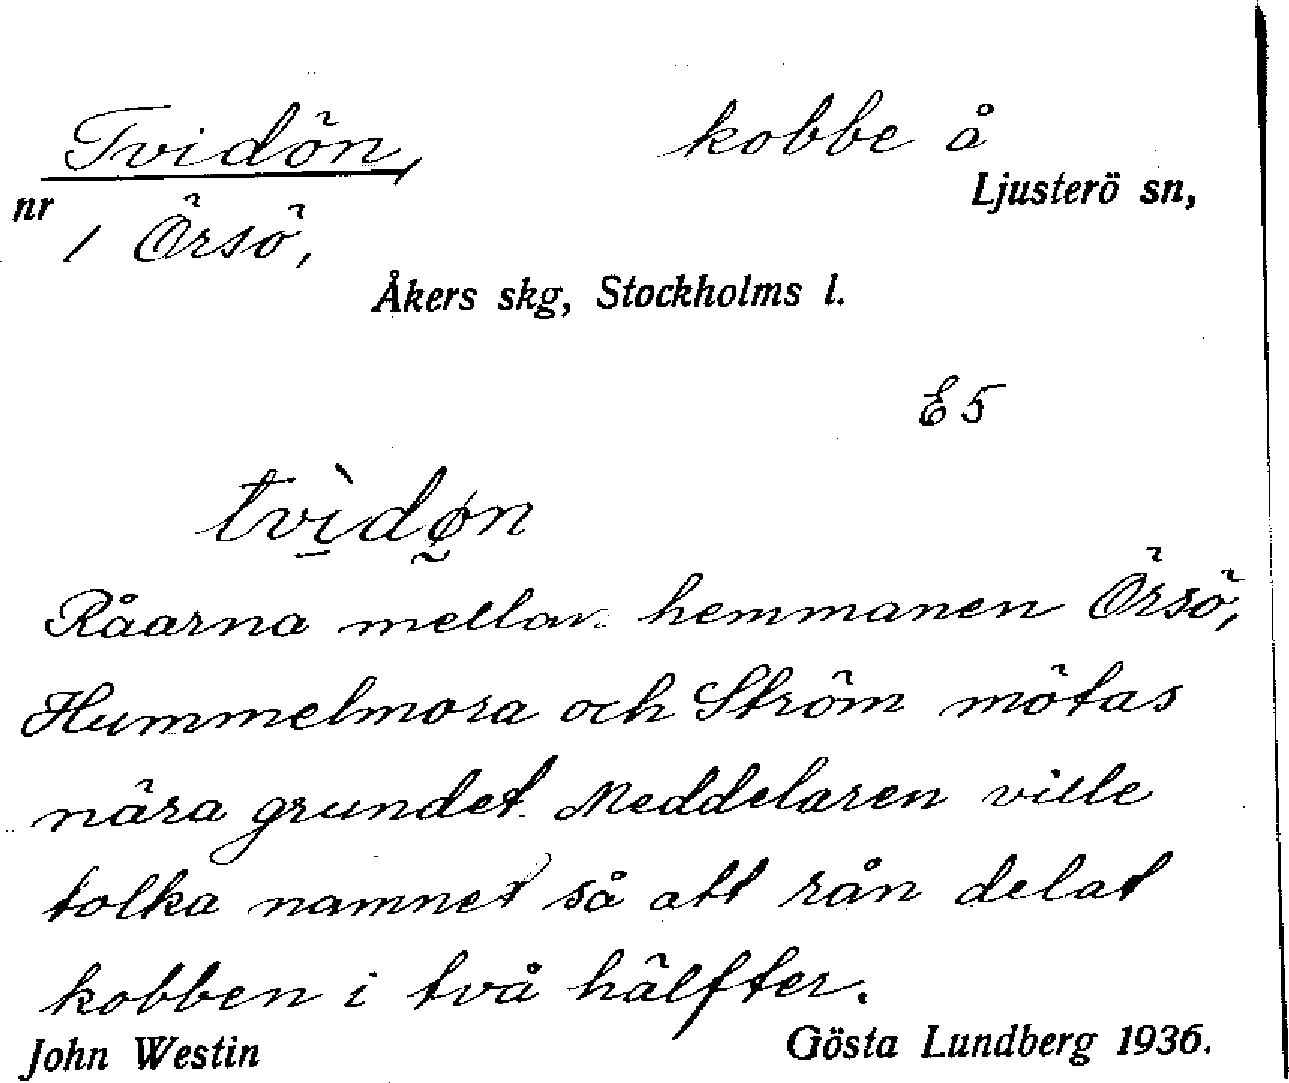 Tvidön, kobbe å
Ljusterö sn,
nr 1 Örsö,
Åkers skg, Stockholms l.
E5
tvìdøn
Råarna mellan hemmanen Örsö,
Hummelmora och Ström mötas
nära grundet. Meddelaren ville
tolka namnet så att rån delat
kobben i två hälfter.
John Westin Gösta Lundberg 1936.